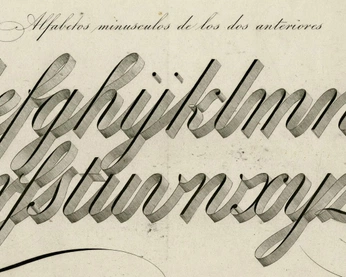 Alfabetos minusculos de los dos anteriores
efghijklmn
fstuvnxyp